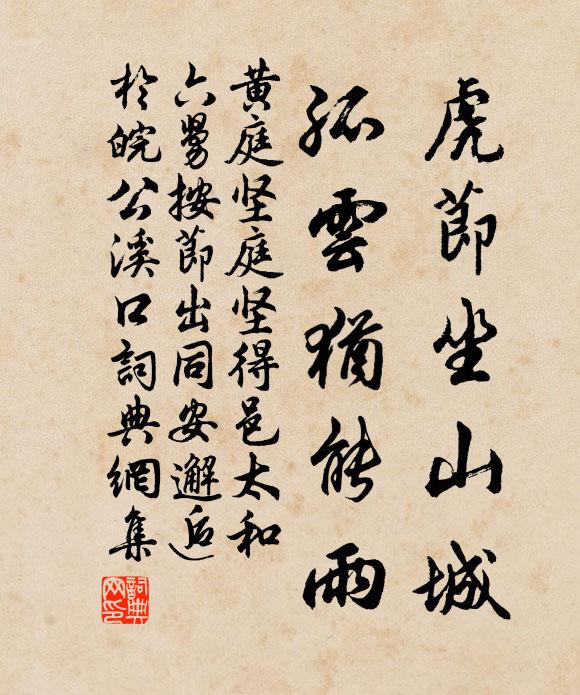 虎莭坐山城
孤雲猶能雨
黄庭坚庭坚得邑太和
六舅按莭出同安邂逅
於皖公溪口詞典網集
詞典网印